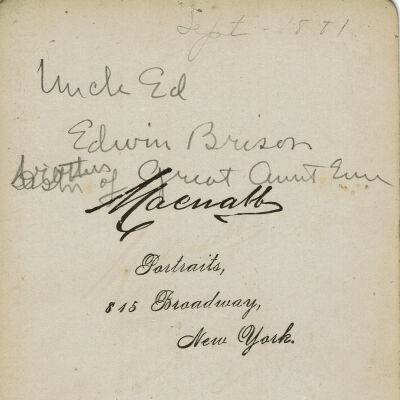 Sept - 1881
Uncle Ed
Edwin Brison
brother of Great Aunt Em
Macnabb
Portraits,
815 Broadway,
New York.